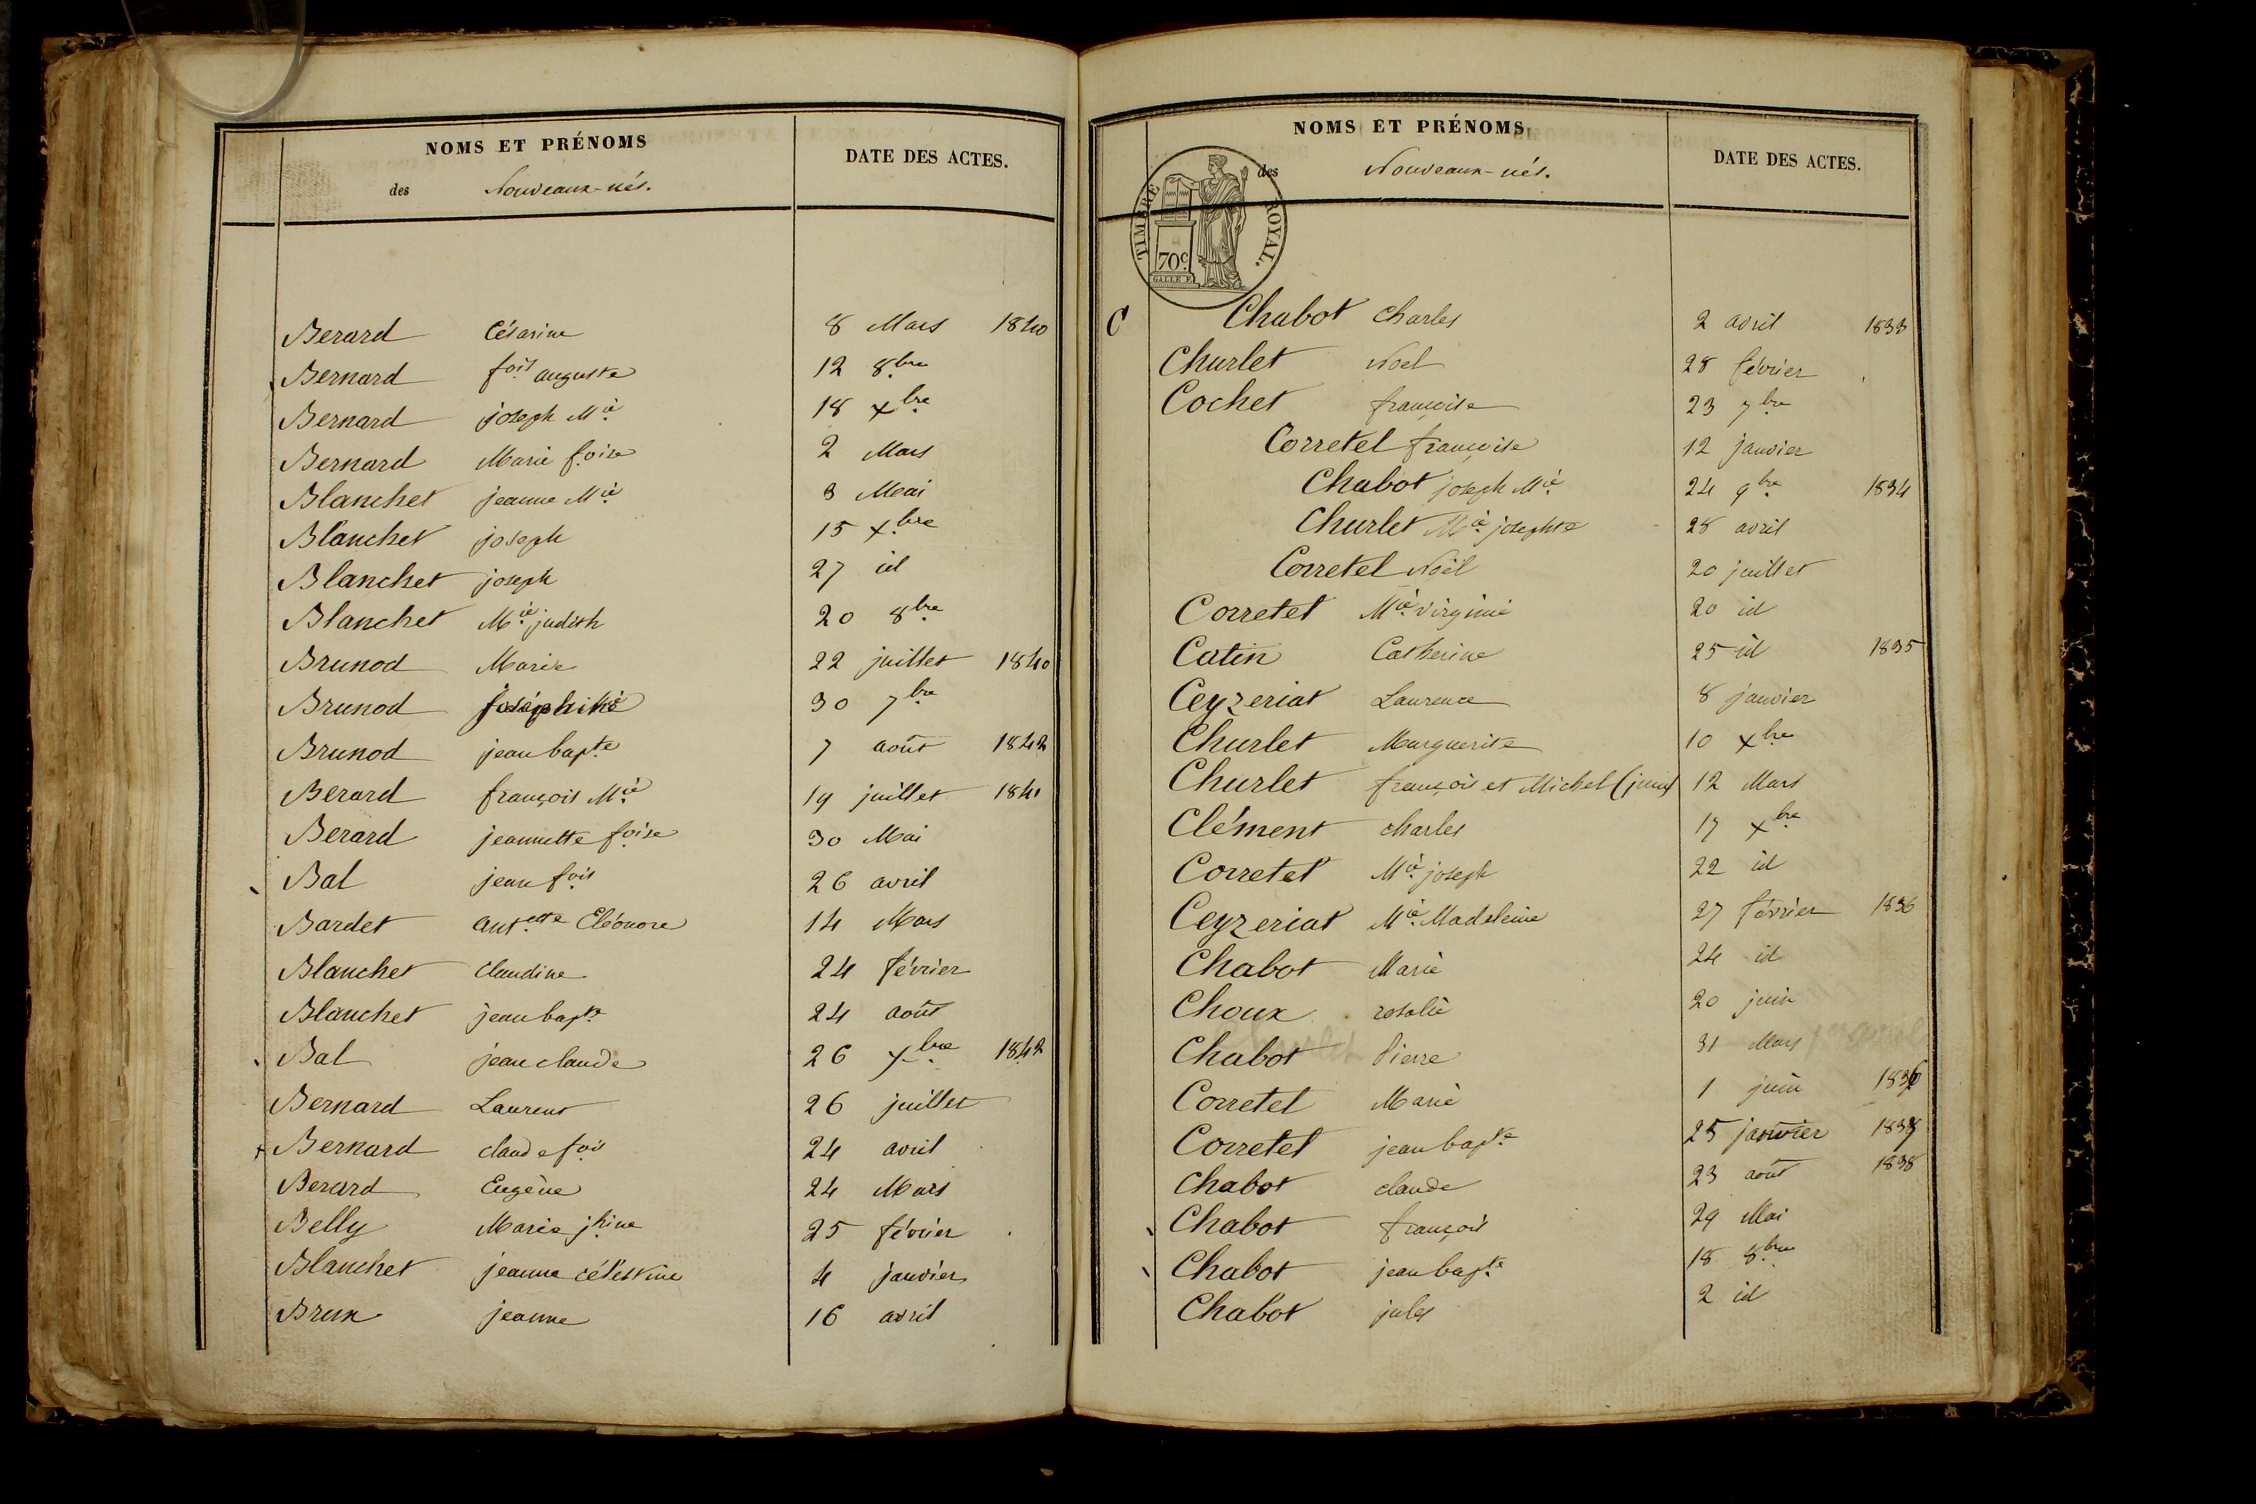 NOMS ET PRÉNOMS
des Nouveaux-nés.
DATE DES ACTES.
Berard Césarine 8 Mars 1840
Bernard fois auguste 12 8bre
Bernard joseph Mie 18 Xbre
Bernard Marie foise 2 Mars
Blanchet jeanne Mie 3 Mai
Blanchet joseph 15 Xbre
Blanchet joseph 27 id
Blanchet Mie judith 20 8bre
Brunod Marie 22 juillet 1840
Brunod joséphine 30 7bre
Brunod jean bapte 7 août 1842
Berard françois Mie 19 juillet 1841
Berard jeannette foise 30 Mai
Bal jean fois 26 avril
Bardet antette Eléonore 14 Mars
Blanchet claudine 24 février
Blanchet jean bapte 24 août
Bal jean claude 26 Xbre 1842
Bernard Laurent 26 juillet
Bernard claude fois 24 avril
Berard Eugène 24 Mars
Belly Marie jhine 25 février
Blanchet jeanne célestine 4 janvier
Brun jeanne 16 avril
NOMS ET PRÉNOMS
des Nouveaux-nés.
DATE DES ACTES.
TIMBRE ROYAL.
70c
C Chabot charles 2 avril 1833
Churlet Noel 28 février
Cochet françoise 23 7bre
Corretel françoise 12 janvier
Chabot joseph Mie 24 9bre 1834
Churlet Mie josephte 28 avril
Corretel Noël 20 juillet
Corretel Mie virginie 20 id
Catin Catherine 25 id 1835
Ceyzeriat Laurence 8 janvier
Churlet Marguerite 10 Xbre
Churlet françois et Michel (jum 12 Mars
Clément charles 17 Xbre
Corretel Mie joseph 22 id
Ceyzeriat Mie Madeleine 27 février 1836
Chabot Marie 24 id
Choux rosalie 20 juin
Chabot Pierre 31 Mars
Corretel Marie 1 juin 1836
Corretel jean bapte 25 janvier
Chabot claude 23 août 1838
Chabot françois 29 Mai
Chabot jean bapte 18 8bre
Chabot jules 2 id